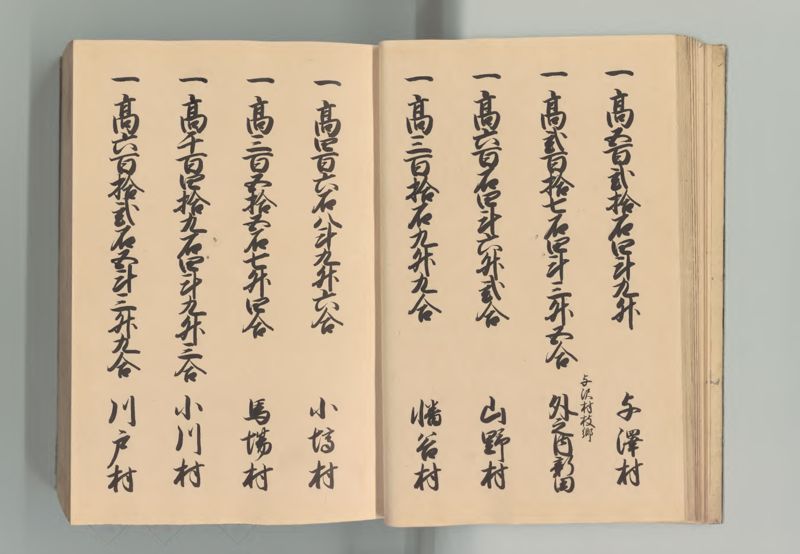 一高五百弐拾石四斗九升 与澤村
一高弐百拾七石四斗三升五合 与沢村枝郷 外之内新田
一高六百石四斗六升弐合 山野村
一高三百拾石九升九合 幡谷村
一高四百六石八斗九升六合 小塙村
一高三百五拾五石七升四合 馬場村
一高千百四拾九石四斗九升三合 小川村
一高六百拾弐石五斗三升九合 川戸村